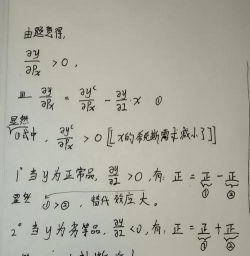 由题意得,
∂y/∂Px > 0 ,
且 ∂y/∂Px = ∂y^c/∂Px - ∂y/∂I · x ①
显然
①式中, ∂y^c/∂Px > 0 [[x的希克斯需求减小了]]
1° 当y为正常品, ∂y/∂I > 0, 有: 正 = 正 - 正
① ②
显然 ① > ②, 替代效应大。
2° 当y为劣等品, ∂y/∂I < 0, 有: 正 = 正 + 正
① ②